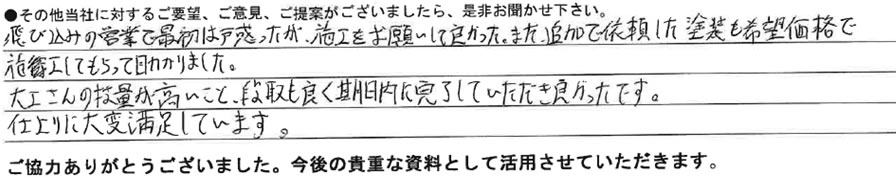 ●その他当社に対するご要望、ご意見、ご提案がございましたら、是非お聞かせ下さい。
飛び込みの営業で最初は戸惑ったが、施工をお願いして良かった。また、追加で依頼した塗装も希望価格で
施工してもらって助かりました。
大工さんの技量が高いこと、段取も良く期日内に完了していただき良かったです。
仕上りに大変満足しています。
ご協力ありがとうございました。今後の貴重な資料として活用させていただきます。